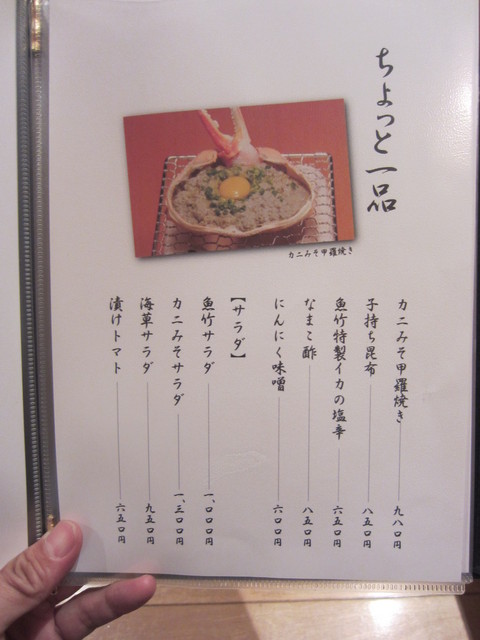 ちょっと一品
カニみそ甲羅焼き
カニみそ甲羅焼き 九八〇円
子持ち昆布 八五〇円
魚竹特製イカの塩辛 六五〇円
なまこ酢 八五〇円
にんにく味噌 六〇〇円
【サラダ】
魚竹サラダ 一、〇〇〇円
カニみそサラダ 一、三〇〇円
海草サラダ 九五〇円
漬けトマト 六五〇円